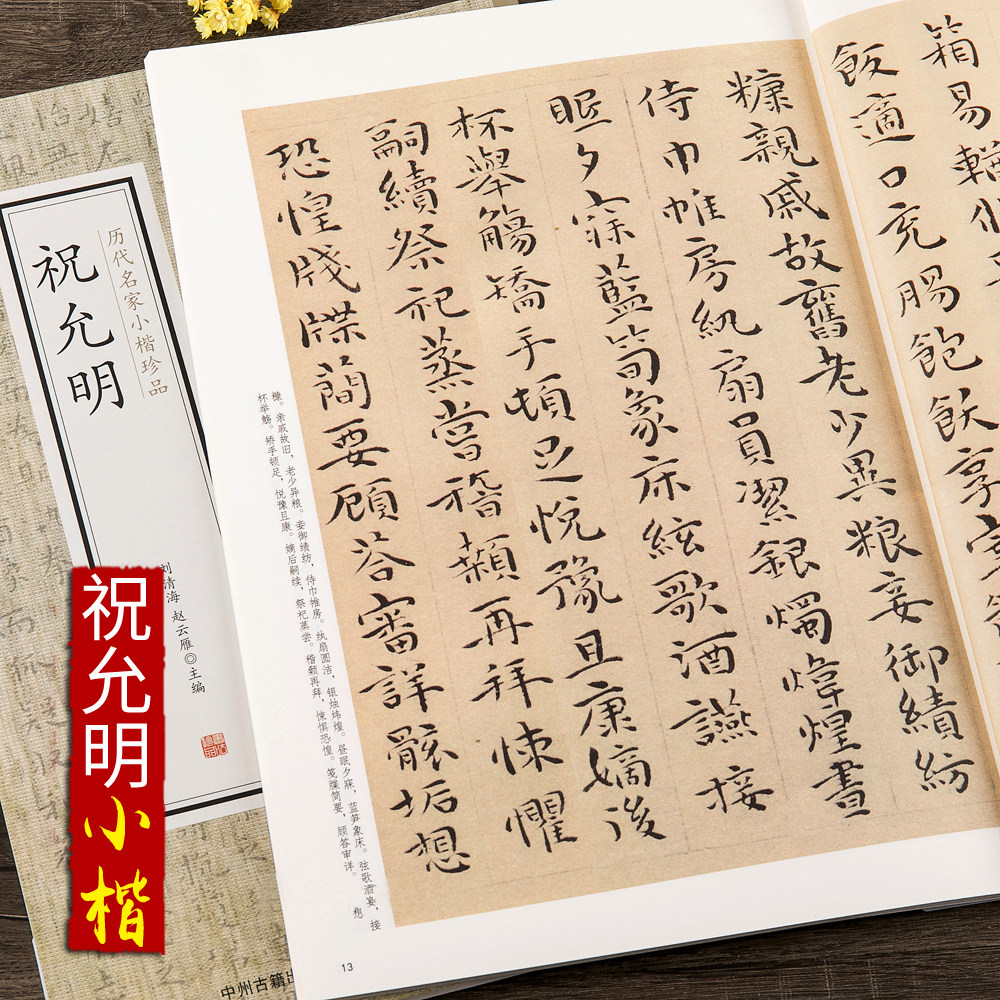 箱易輶
飯適口充腸飽飫享宰
糠親戚故舊老少異粮妾御績紡
侍巾帷房紈扇員潔銀燭煒煌晝
眠夕寐藍筍象床絃歌酒讌接
杯舉觴矯手頓足悅豫且康嫡後
嗣續祭祀蒸嘗稽顙再拜悚懼
恐惶牋牒簡要顧答審詳骸垢想
糠。亲戚故旧，老少异粮。妾御绩纺，侍巾帷房。纨扇圆洁，银烛炜煌。昼眠夕寐，蓝笋象床。弦歌酒宴，接
杯举觞。矫手顿足，悦豫且康。嫡后嗣续，祭祀蒸尝。稽颡再拜，悚惧恐惶。笺牒简要，顾答审详。　想
13
历代名家小楷珍品
祝允明
刘清海 赵云雁◎主编
中州古籍出
祝允明小楷